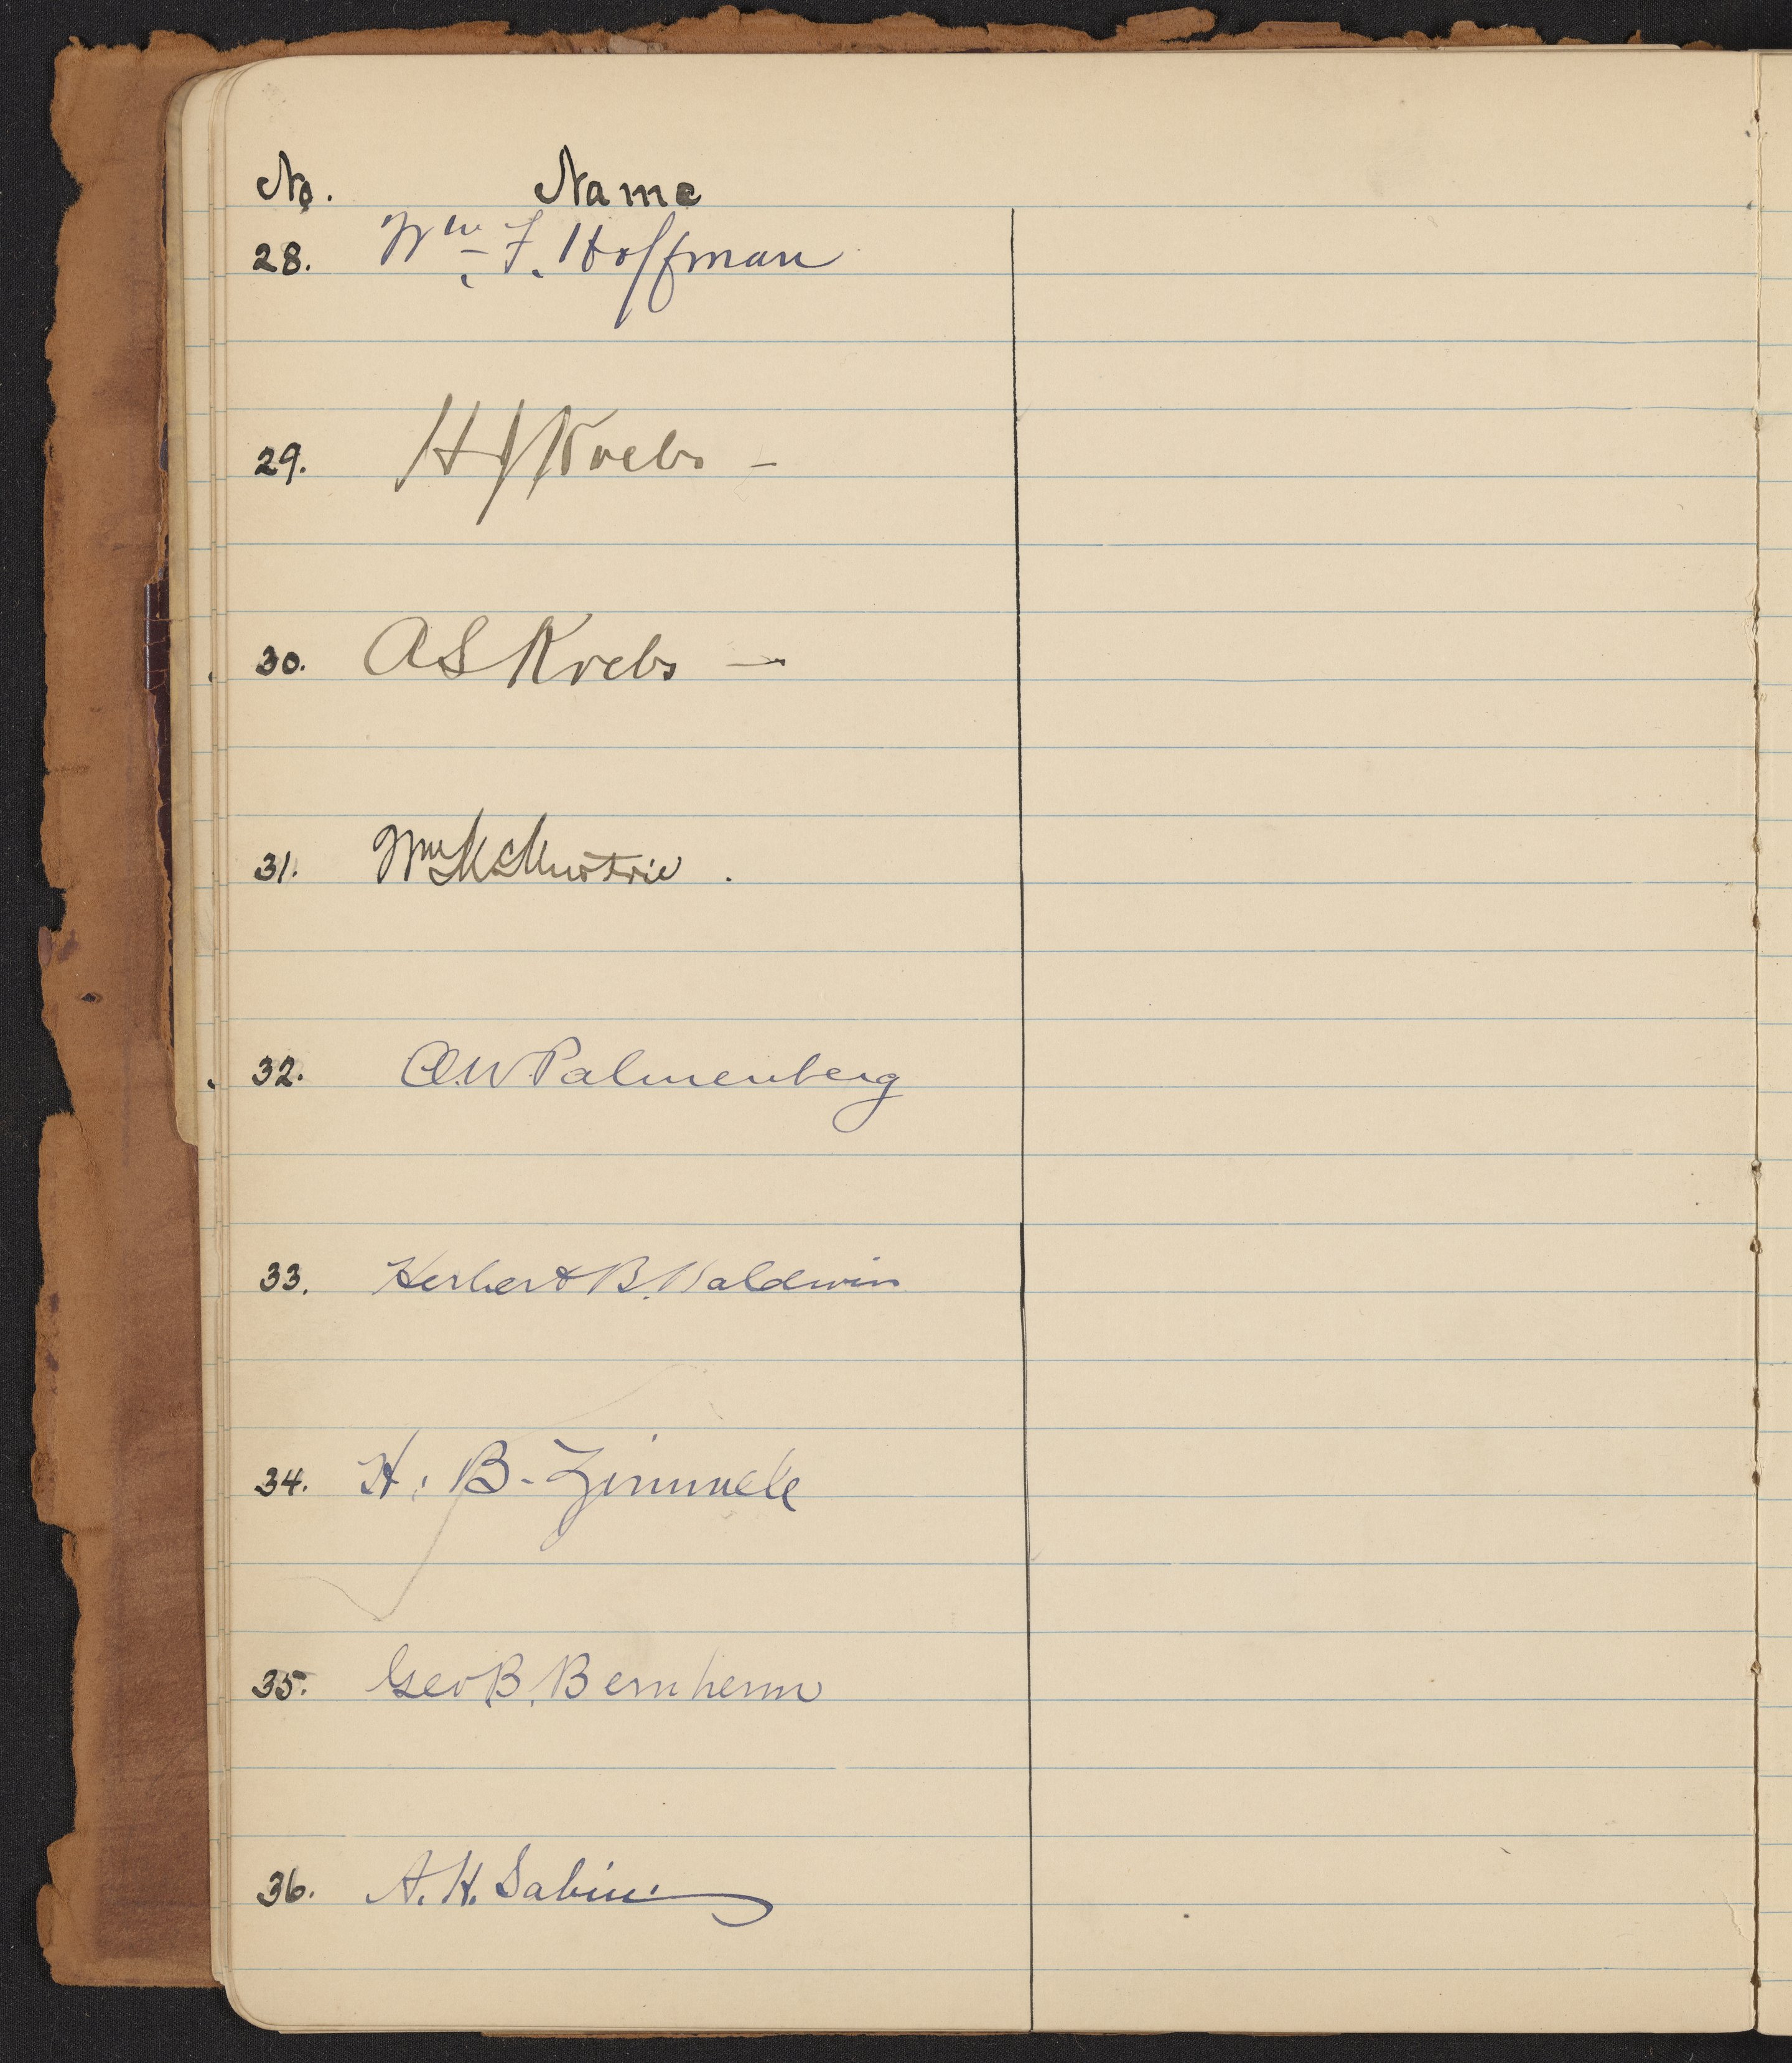 No. Name
28. Wm. F. Hoffman
29. H J Krebs -
30. A S Krebs -
31. Wm McMurtrie .
32. C.W. Palmenberg
33. Herbert B. Baldwin
34. H. B. Zimmele
35. Geo B. Bernheim
36. A. H. Sabin